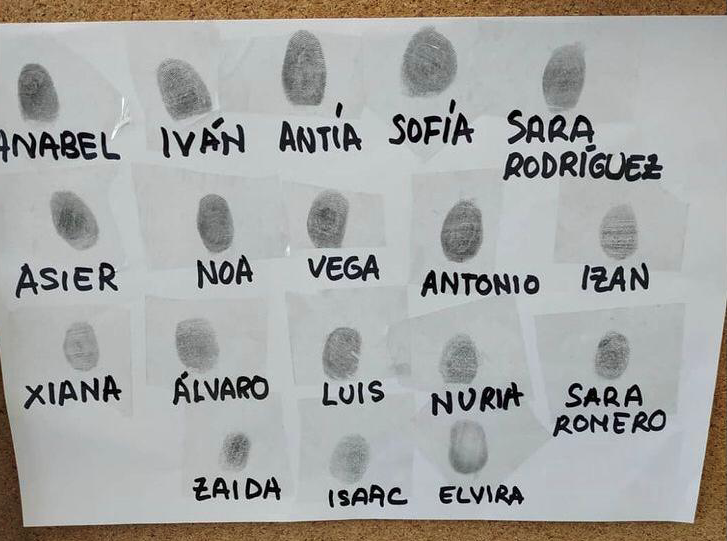 ANABEL IVÁN ANTÍA SOFÍA SARA
RODRÍGUEZ
ASIER NOA VEGA ANTONIO IZAN
XIANA ÁLVARO LUIS NURIA SARA
ROMERO
ZAIDA ISAAC ELVIRA